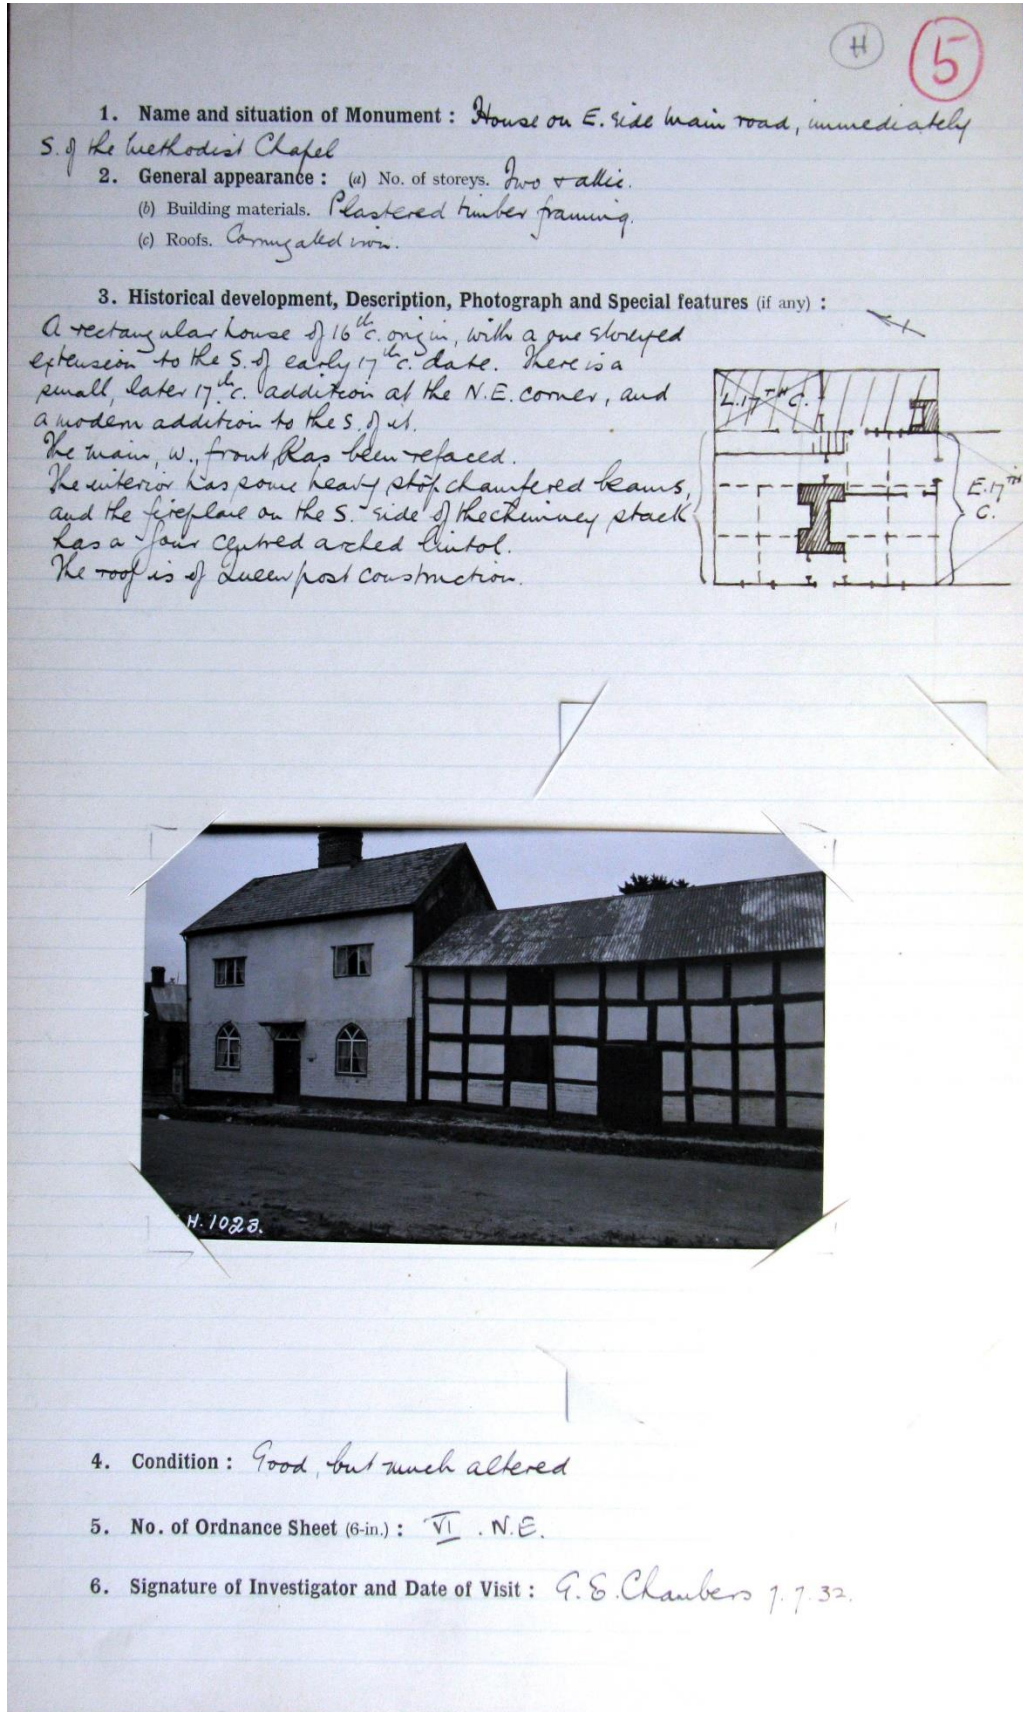 H 5
1. Name and situation of Monument : House on E. side main road, immediately
S. of the Methodist Chapel
2. General appearance : (a) No. of storeys. Two & attic.
(b) Building materials. Plastered timber framing.
(c) Roofs. Corrugated iron.
3. Historical development, Description, Photograph and Special features (if any) :
A rectangular house of 16th c. origin, with a one storeyed
extension to the S. of early 17th c. date. There is a
small, later 17th c. addition at the N.E. corner, and
a modern addition to the S. of it.
The main, W., front, has been refaced.
The interior has some heavy stop chamfered beams,
and the fireplace on the S. side of the chimney stack
has a four centred arched lintol.
The roof is of Queen post construction.
L. 17TH C.
E. 17TH
C.
H. 1023.
4. Condition : Good, but much altered
5. No. of Ordnance Sheet (6-in.) : VI . N.E.
6. Signature of Investigator and Date of Visit : G. E. Chambers 7.7.32.